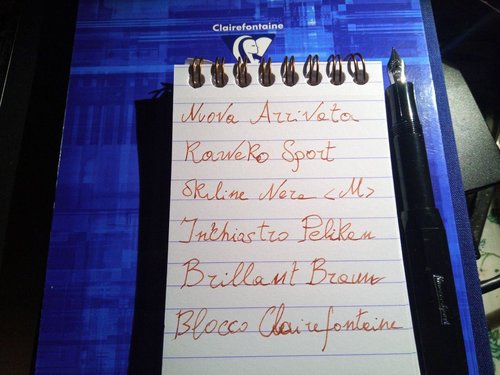 Clairefontaine
Nuova Arrivata
Kaweko Sport
Skiline Nera <M>
Inchiostro Pelikan
Brillant Braun
Blocco Clairefontaine